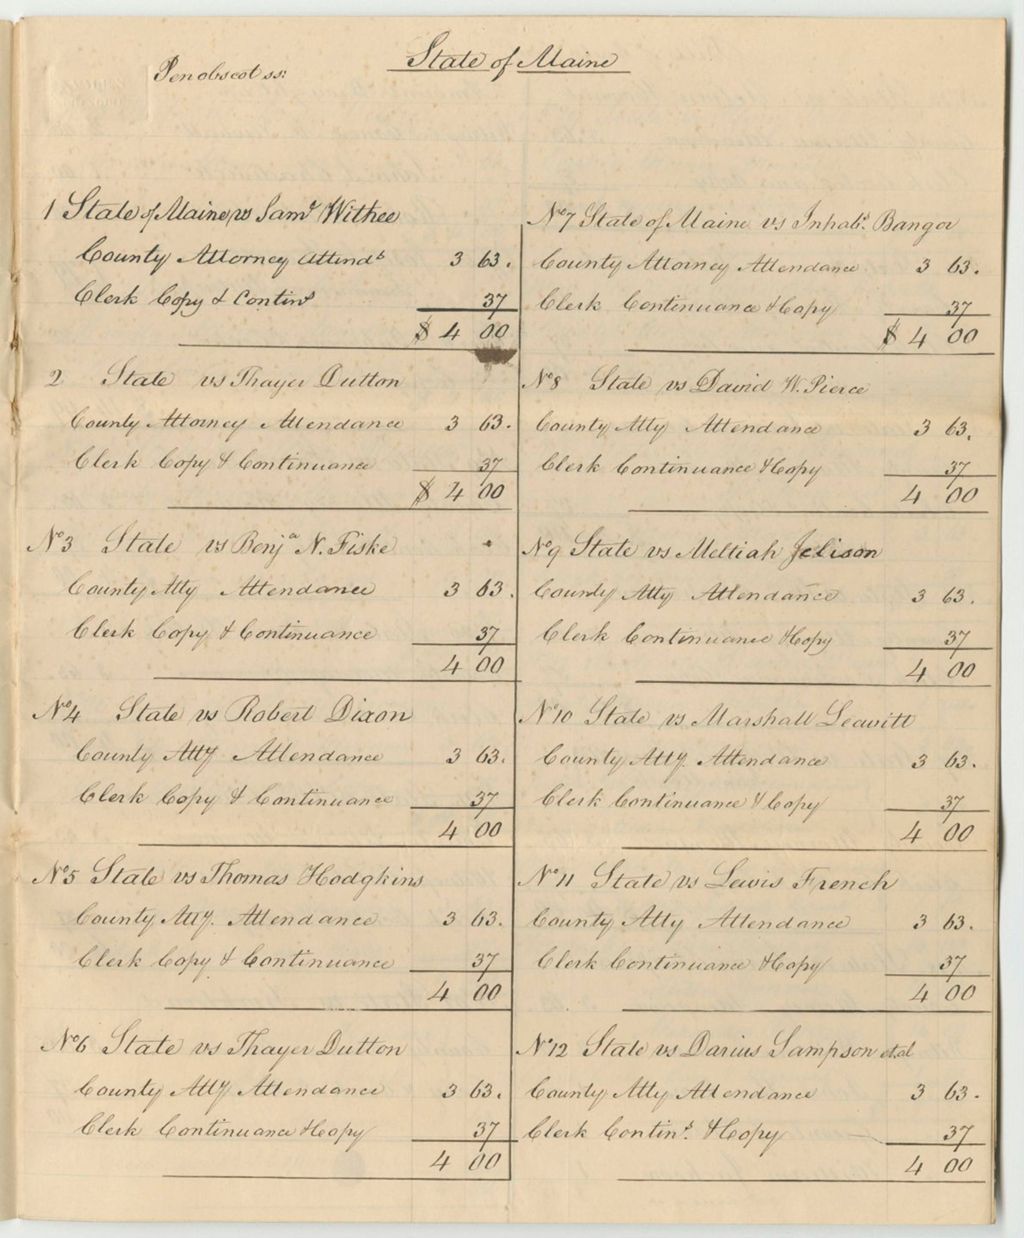 State of Maine
Penobscot ss:
1 State of Maine vs Saml Withee
County Attorney Attends 3 63.
Clerk Copy & Contins 37
$ 4 00
2 State vs Thayer Dutton
County Attorney Attendance 3 63.
Clerk Copy & Continuance 37
$ 4 00
No 3 State vs Benja N. Fiske
County Atty Attendance 3 63.
Clerk Copy & Continuance 37
4 00
No 4 State vs Robert Dixon
County Atty Attendance 3 63.
Clerk Copy & Continuance 37
4 00
No 5 State vs Thomas Hodgkins
County Atty. Attendance 3 63.
Clerk Copy & Continuance 37
4 00
No 6 State vs Thayer Dutton
County Atty Attendance 3 63.
Clerk Continuance & Copy 37
4 00
No 7 State of Maine vs Inhabts. Bangor
County Attorney Attendance 3 63.
Clerk Continuance & Copy 37
$ 4 00
No 8 State vs David W. Pierce
County Atty Attendance 3 63.
Clerk Continuance & Copy 37
4 00
No 9 State vs Meltiah Jelison
County Atty Attendance 3 63.
Clerk Continuance & Copy 37
4 00
No 10 State vs Marshall Leavitt
County Atty. Attendance 3 63.
Clerk Continuance & Copy 37
4 00
No 11 State vs Lewis French
County Atty Attendance 3 63.
Clerk Continuance & Copy 37
4 00
No 12 State vs Darius Sampson et al
County Atty Attendance 3 63.
Clerk Contins. & Copy 37
4 00